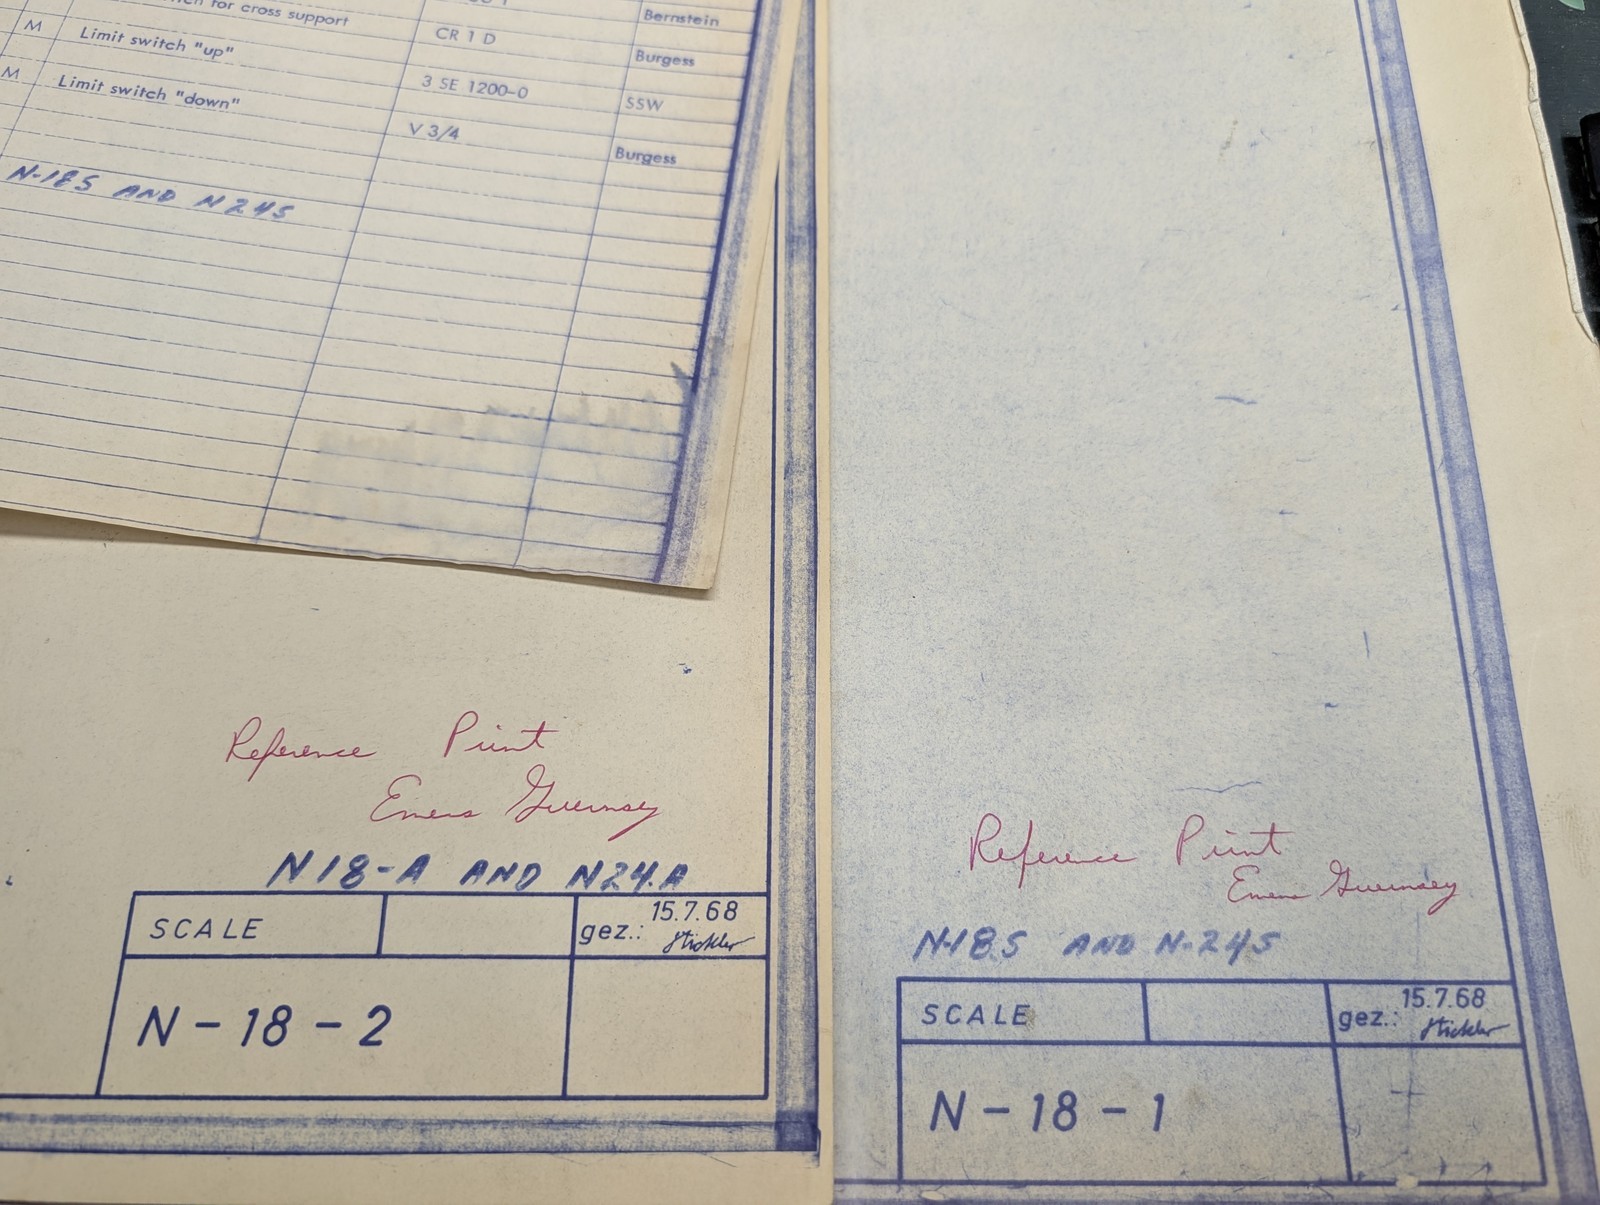 for cross support
Bernstein
M Limit switch "up" CR 1 D Burgess
M Limit switch "down" 3 SE 1200-0 SSW
V 3/4 Burgess
N-18S AND N24S
Reference Print
Emens Guernsey
N18-A AND N24.A
SCALE gez.: 15.7.68
Stickler
N-18-2
Reference Print
Emens Guernsey
N-18.S AND N-24S
SCALE gez.: 15.7.68
Stickler
N-18-1